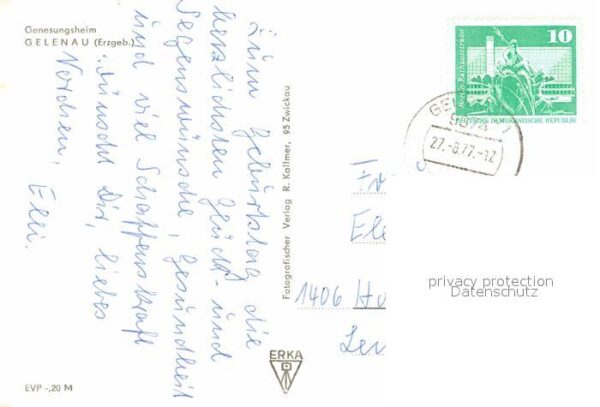 Genesungsheim
GELENAU (Erzgeb.)
Zum Geburtstag die
herzlichsten Glück- und
Segenswünsche, Gesundheit
und viel Schaffenskraft
wünscht Dir, liebes
Elli.
Fotografischer Verlag R. Kallmer, 95 Zwickau
ERKA
EVP -,20 M
10
DEUTSCHE DEMOKRATISCHE REPUBLIK
9374
27.-6.77.-12
1406
privacy protection
Datenschutz